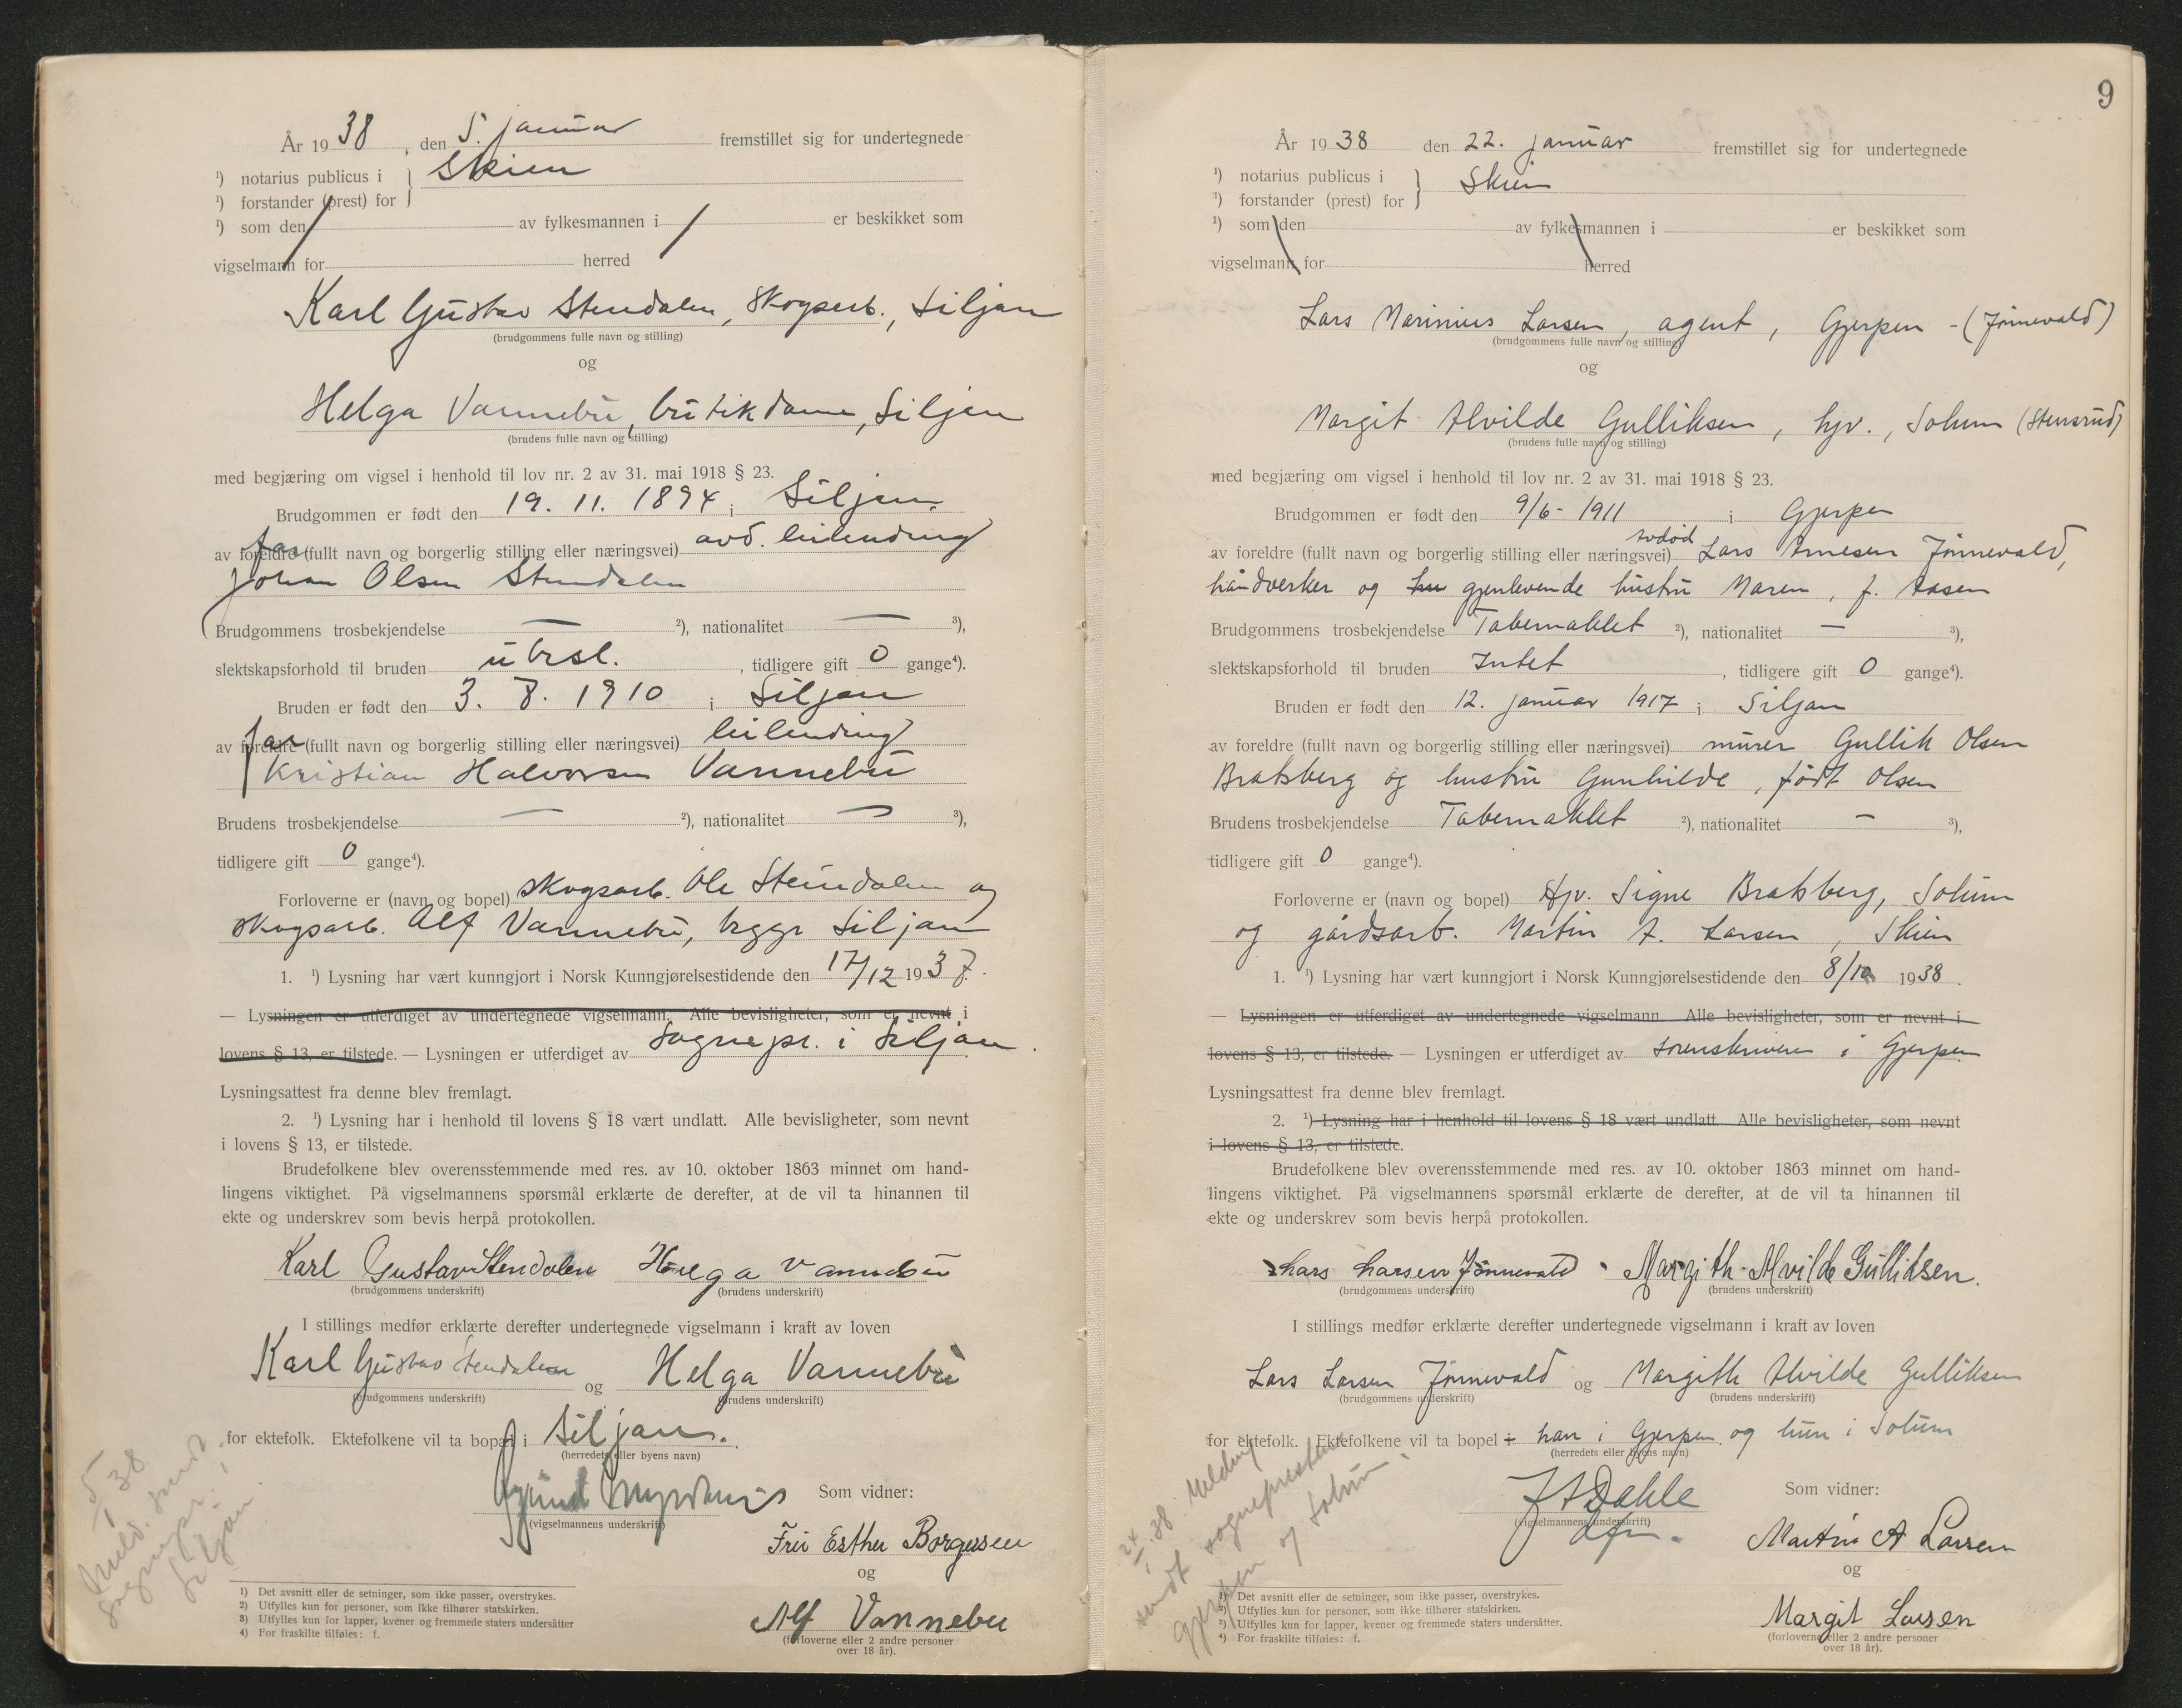 År 1938, den 5. januar fremstillet sig for undertegnede
¹) notarius publicus i } Skien
¹) forstander (prest) for
¹) som den av fylkesmannen i er beskikket som
vigselmann for herred
Karl Gustav Stendalen, skogsarb., Siljan
(brudgommens fulle navn og stilling)
og
Helga Vannebu, butikdame, Siljan
(brudens fulle navn og stilling)
med begjæring om vigsel i henhold til lov nr. 2 av 31. mai 1918 § 23.
Brudgommen er født den 19. 11. 1894 i Siljan.
far
av foreldre (fullt navn og borgerlig stilling eller næringsvei) avd. leilending
Johan Olsen Stendalen
Brudgommens trosbekjendelse — ²), nationalitet — ³),
slektskapsforhold til bruden ubesl., tidligere gift 0 gange⁴).
Bruden er født den 3. 8. 1910 i Siljan
far
av foreldre (fullt navn og borgerlig stilling eller næringsvei) leilending
Kristian Halvorsen Vannebu
Brudens trosbekjendelse — ²), nationalitet — ³),
tidligere gift 0 gange⁴).
Forloverne er (navn og bopel) skogsarb. Ole Stendalen og
skogsarb. Alf Vannebu, begge Siljan
1. ¹) Lysning har vært kunngjort i Norsk Kunngjørelsestidende den 17/12 1937.
— Lysningen er utferdiget av undertegnede vigselmann. Alle bevisligheter, som er nevnt i
lovens § 13, er tilstede. — Lysningen er utferdiget av Sognepr. i Siljan.
Lysningsattest fra denne blev fremlagt.
2. ¹) Lysning har i henhold til lovens § 18 vært undlatt. Alle bevisligheter, som nevnt
i lovens § 13, er tilstede.
Brudefolkene blev overensstemmende med res. av 10. oktober 1863 minnet om hand-
lingens viktighet. På vigselmannens spørsmål erklærte de derefter, at de vil ta hinannen til
ekte og underskrev som bevis herpå protokollen.
Karl Gustav Stendalen Helga Vannebu
(brudgommens underskrift) (brudens underskrift)
I stillings medfør erklærte derefter undertegnede vigselmann i kraft av loven
Karl Gustav Stendalen og Helga Vannebu
(brudgommens underskrift) (brudens underskrift)
for ektefolk. Ektefolkene vil ta bopæl i Siljan.
(herredets eller byens navn)
Som vidner:
(vigselmannens underskrift)
Fru Esther Borgersen
og
Alf Vannebu
(forloverne eller 2 andre personer
over 18 år).
5/1 38
Meld. sendt
sognepr. i
Siljan.
1) Det avsnitt eller de setninger, som ikke passer, overstrykes.
2) Utfylles kun for personer, som ikke tilhører statskirken.
3) Utfylles kun for lapper, kvener og fremmede staters undersåtter
4) For fraskilte tilføies: f.
9
År 1938 den 22. januar fremstillet sig for undertegnede
¹) notarius publicus i } Skien
¹) forstander (prest) for
¹) som den av fylkesmannen i er beskikket som
vigselmann for herred
Lars Marinius Larsen, agent, Gjerpen - (Jønnevald)
(brudgommens fulle navn og stilling)
og
Margit Alvilde Gulliksen, hjv., Solum (Stensrud)
(brudens fulle navn og stilling)
med begjæring om vigsel i henhold til lov nr. 2 av 31. mai 1918 § 23.
Brudgommen er født den 9/6 - 1911 i Gjerpen
av foreldre (fullt navn og borgerlig stilling eller næringsvei) avdød Lars Arnesen Jønnevald,
håndverker og gjenlevende hustru Maren, f. Aasen
Brudgommens trosbekjendelse Tabernaklet ²), nationalitet — ³),
slektskapsforhold til bruden Intet, tidligere gift 0 gange⁴).
Bruden er født den 12. januar 1917 i Siljan
av foreldre (fullt navn og borgerlig stilling eller næringsvei) murer Gullik Olsen
Bratsberg og hustru Gunhilde, født Olsen
Brudens trosbekjendelse Tabernaklet ²), nationalitet — ³),
tidligere gift 0 gange⁴).
Forloverne er (navn og bopel) Hjv. Signe Bratsberg, Solum
og gårdsarb. Martin A. Larsen, Skien
1. ¹) Lysning har vært kunngjort i Norsk Kunngjørelsestidende den 8/1 1938.
— Lysningen er utferdiget av undertegnede vigselmann. Alle bevisligheter, som er nevnt i
lovens § 13, er tilstede. — Lysningen er utferdiget av sorenskriveren i Gjerpen
Lysningsattest fra denne blev fremlagt.
2. ¹) Lysning har i henhold til lovens § 18 vært undlatt. Alle bevisligheter, som nevnt
i lovens § 13, er tilstede.
Brudefolkene blev overensstemmende med res. av 10. oktober 1863 minnet om hand-
lingens viktighet. På vigselmannens spørsmål erklærte de derefter, at de vil ta hinannen til
ekte og underskrev som bevis herpå protokollen.
Lars Larsen Jønnevald Margith Alvilde Gulliksen.
(brudgommens underskrift) (brudens underskrift)
I stillings medfør erklærte derefter undertegnede vigselmann i kraft av loven
Lars Larsen Jønnevald og Margith Alvilde Gulliksen
(brudgommens underskrift) (brudens underskrift)
for ektefolk. Ektefolkene vil ta bopel i han i Gjerpen og hun i Solum
(herredets eller byens navn)
J A Dahle
(vigselmannens underskrift)
Som vidner:
Martin A Larsen
og
Margit Larsen
(forloverne eller 2 andre personer
over 18 år).
24/1.38 Melding
sendt sogneprestene
Gjerpen og Solum.
¹) Det avsnitt eller de setninger, som ikke passer, overstrykes.
²) Utfylles kun for personer, som ikke tilhører statskirken.
³) Utfylles kun for lapper, kvener og fremmede staters undersåtter.
⁴) For fraskilte tilføies: f.